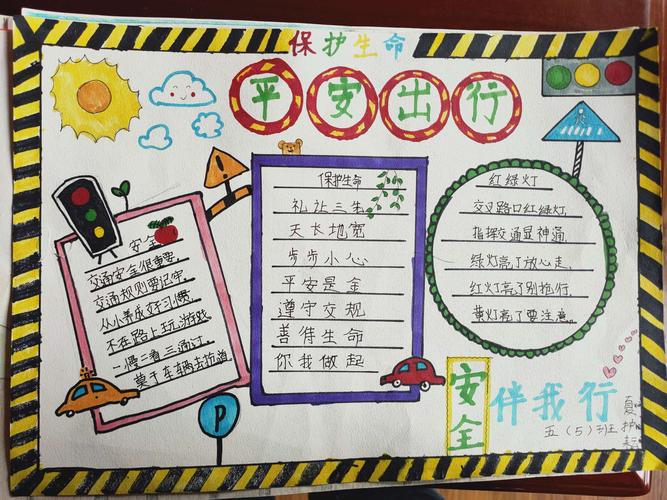 保护生命
平安出行
安全
交通安全很重要,
交通规则要记牢。
从小养成好习惯,
不在路上玩游戏
一慢二看三通过,
莫于车辆去抢道
保护生命
礼让三先
天长地宽
步步小心
平安是金
遵守交规
善待生命
你我做起
红绿灯
交叉路口红绿灯,
指挥交通显神通,
绿灯亮了放心走,
红灯亮了别抢行,
黄灯亮了要注意。
P
安全
伴我行
五(5)班
夏